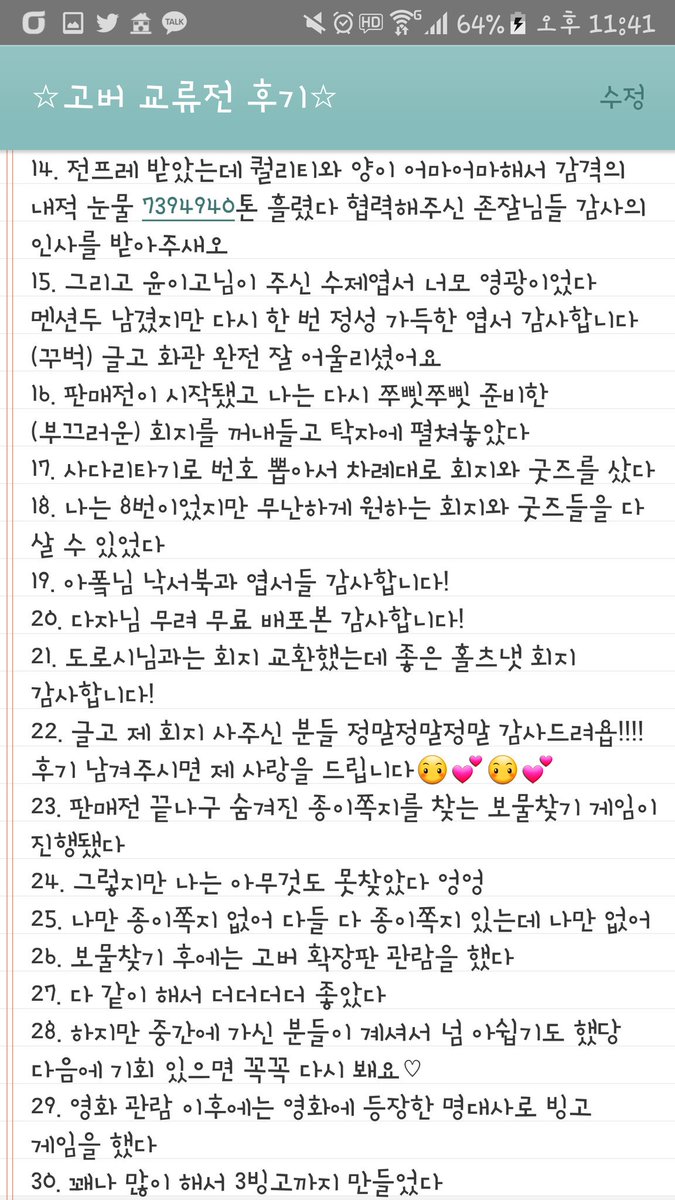 TALK HD G 64% 오후 11:41
☆고버 교류전 후기☆ 수정
14. 전프레 받았는데 퀄리티와 양이 어마어마해서 감격의
내적 눈물 7394940톤 흘렸다 협력해주신 존잘님들 감사의
인사를 받아주새오
15. 그리고 윤이고님이 주신 수제엽서 너모 영광이었다
멘션두 남겼지만 다시 한 번 정성 가득한 엽서 감사합니다
(꾸벅) 글고 화관 완전 잘 어울리셨어요
16. 판매전이 시작됐고 나는 다시 쭈삣쭈삣 준비한
(부끄러운) 회지를 꺼내들고 탁자에 펼쳐놓았다
17. 사다리타기로 번호 뽑아서 차례대로 회지와 굿즈를 샀다
18. 나는 8번이었지만 무난하게 원하는 회지와 굿즈들을 다
살 수 있었다
19. 아폭님 낙서북과 엽서들 감사합니다!
20. 다자님 무려 무료 배포본 감사합니다!
21. 도로시님과는 회지 교환했는데 좋은 홀츠냇 회지
감사합니다!
22. 글고 제 회지 사주신 분들 정말정말정말 감사드려욥!!!!
후기 남겨주시면 제 사랑을 드립니다😶💕😶💕
23. 판매전 끝나구 숨겨진 종이쪽지를 찾는 보물찾기 게임이
진행됐다
24. 그렇지만 나는 아무것도 못찾았다 엉엉
25. 나만 종이쪽지 없어 다들 다 종이쪽지 있는데 나만 없어
26. 보물찾기 후에는 고버 확장판 관람을 했다
27. 다 같이 해서 더더더더 좋았다
28. 하지만 중간에 가신 분들이 계셔서 넘 아쉽기도 했당
다음에 기회 있으면 꼭꼭 다시 봬요♡
29. 영화 관람 이후에는 영화에 등장한 명대사로 빙고
게임을 했다
30. 꽤나 많이 해서 3빙고까지 만들었다